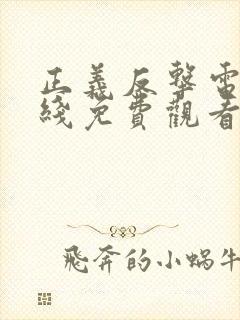 正義反擊電
綫免費觀看
飛奔的小蝸牛